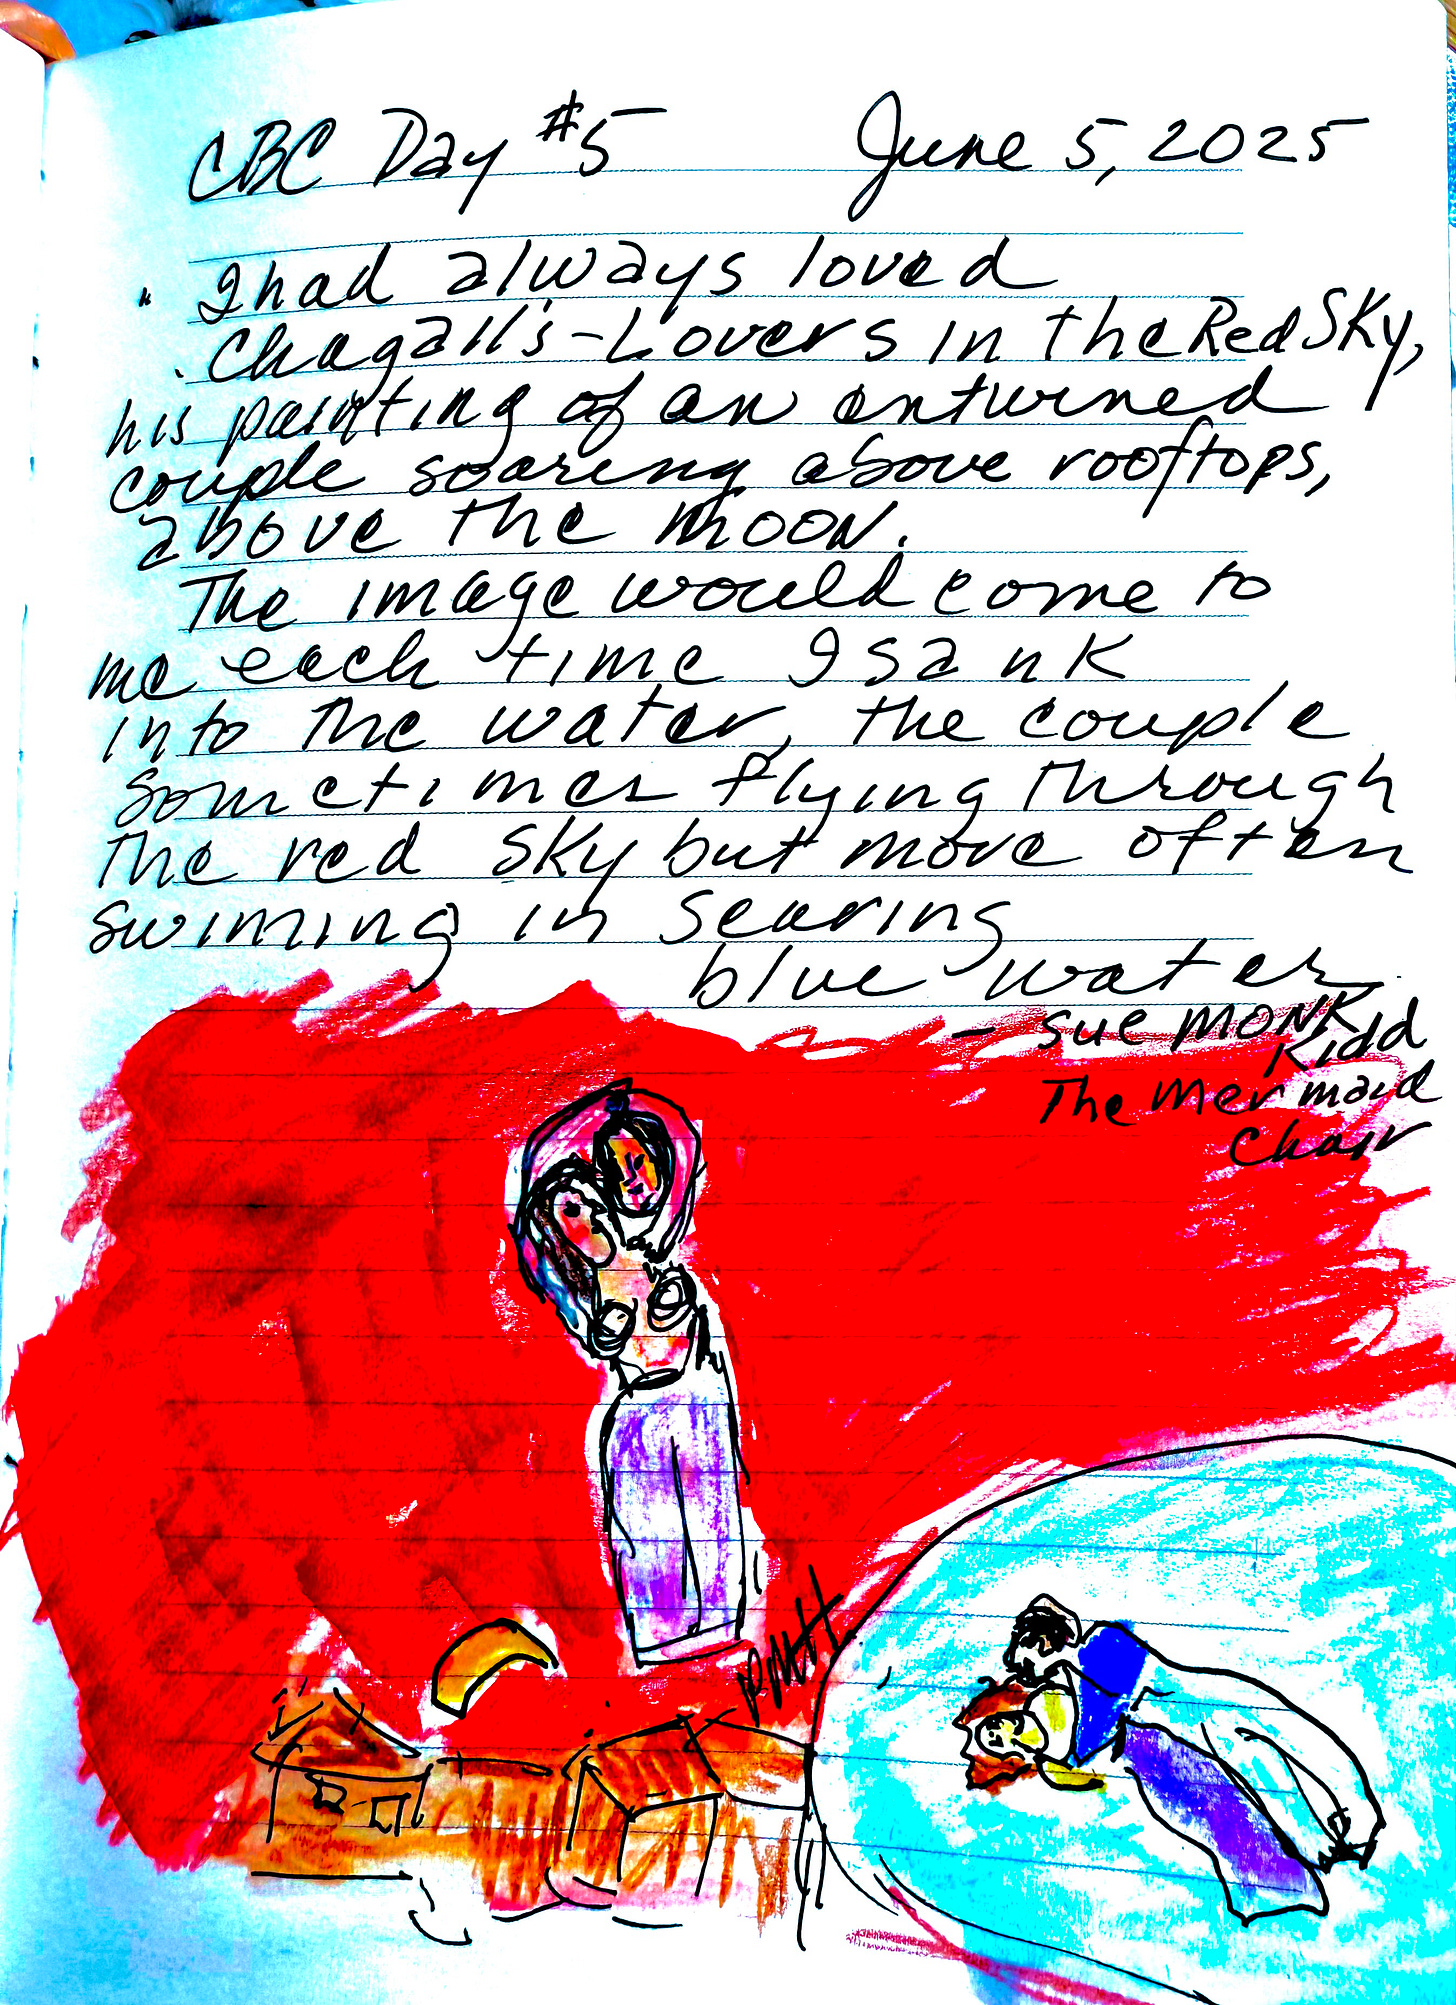 CBC Day #5 June 5, 2025
" I had always loved
Chagall's - Lovers in the Red Sky,
his painting of an enturned
couple soaring above rooftops,
above the moon.
The image would come to
me each time I sank
into the water, the couple
sometimes flying through
the red sky but more often
swiming in searing
blue water.
- Sue Monk
Kidd
The Mermaid
Chair